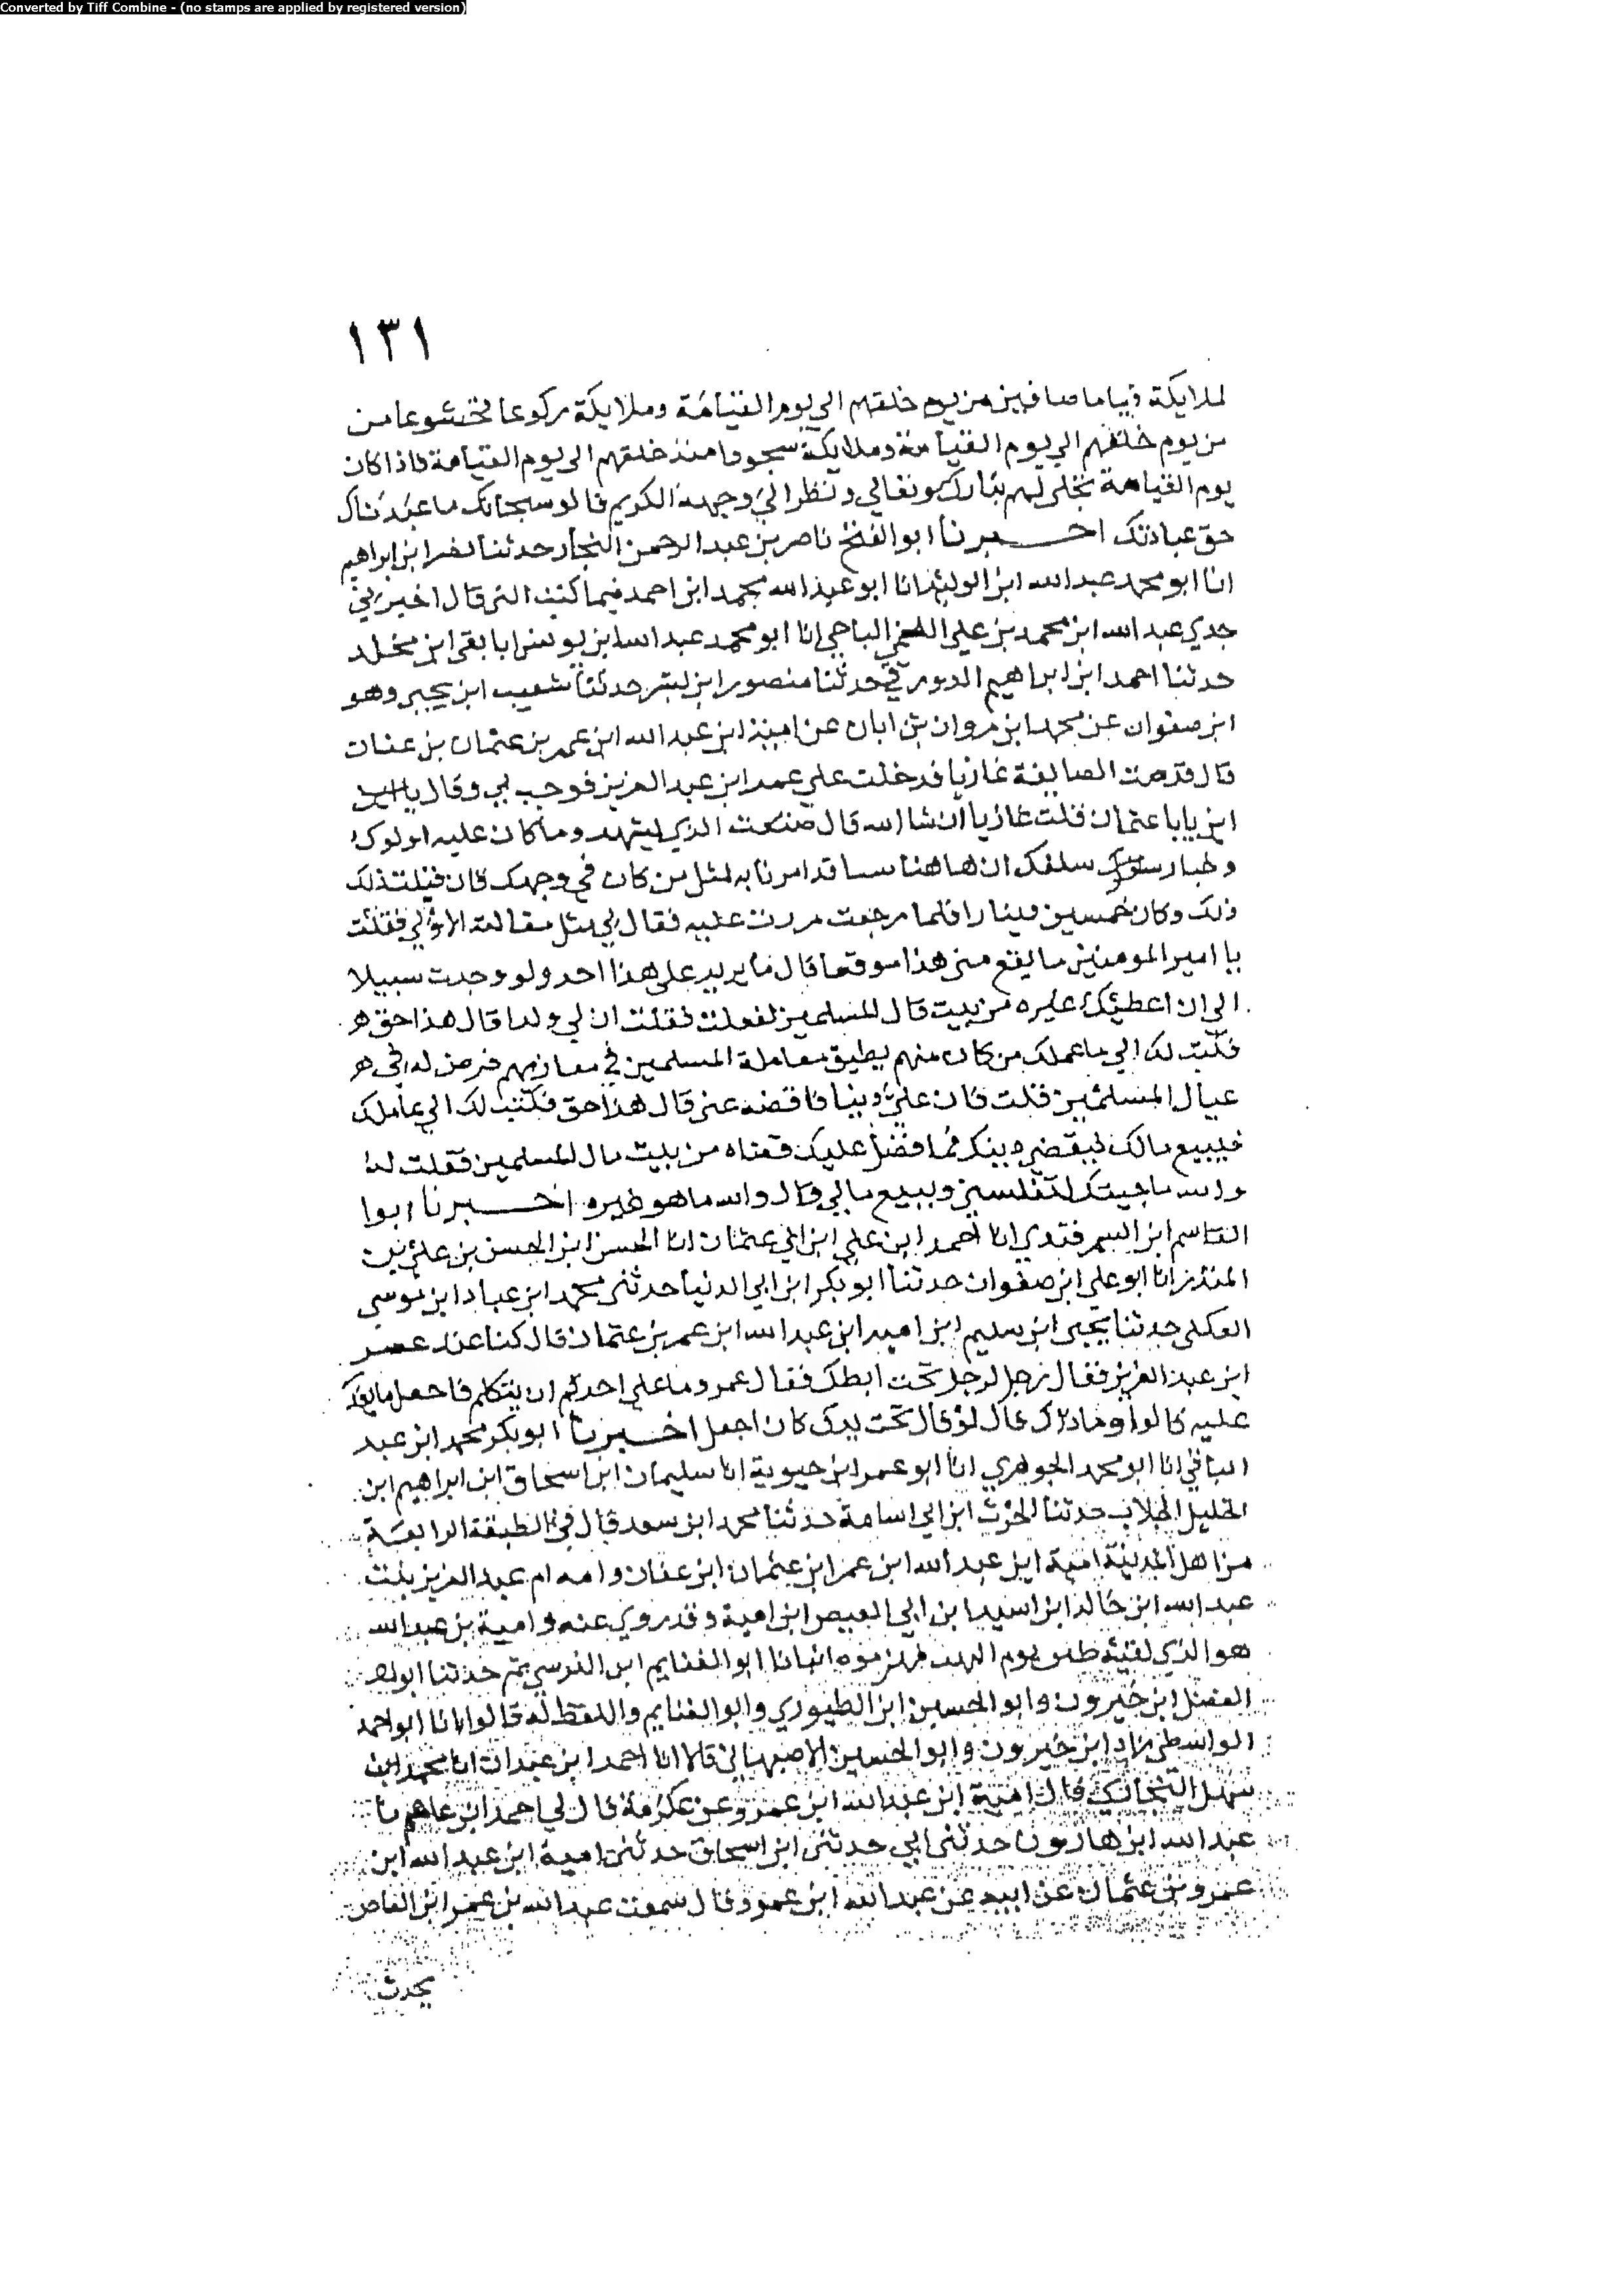 Converted by Tiff Combine - (no stamps are applied by registered version)
١٣١
لملايكة قياما صافين من يوم خلقهم الي يوم القيامة وملايكة ركوعا خشوعا من
من يوم خلقهم الي يوم القيامة وملايكة سجودا منذ خلقهم الي يوم القيامة فاذا كان
يوم القيامة تجلي لهم تبارك وتعالي ونظر الي وجهه الكريم قالو سبحانك ما عبدناك
حق عبادتك اخبرنا ابو الفتح ناصر بن عبد الرحمن النجار حدثنا نصر ابن ابراهيم
انا ابو محمد عبد الله ابن الوليد انا ابو عبد الله محمد ابن احمد فيما كتب الي قال اخبرني
جدي عبد الله ابن محمد بن علي اللخمي الباجي انا ابو محمد عبد الله ابن يونس ابا بقي ابن مخلد
حدثنا احمد ابن ابراهيم الدورقي حدثنا منصور ابن بشر حدثنا شعيب ابن يحيي وهو
ابن صفوان عن محمد ابن مروان بن ابان عن امية ابن عبد الله ابن عمر بن عثمان بن عفان
قال قدمت الصايفة غازيا فدخلت علي عمر ابن عبد العزيز فوحب بي وقال
ابن يابا عثمان قلت غازيا ان شا الله قال صنعت الذي يشهد وما كان عليه اولوك
وخيار سلفك ان هاهنا قد امرنا به لمثل من كان في وجهك فان قبلت ذلك
ذلك وكان خمسين دينارا فلما رجعت مررت عليه فقال لي مثل مقالته الاولي فقلت
يا امير المومنين ما يقع مني هذا موقعا قال ما يريد علي هذا احد ولو وجدت سبيلا
الي ان اعطيك غيره من بيت قال المسلمين لفعلت فقلت ان لي ولدا قال هذا حق
فكتب لك الي عاملك من كان منهم يطيق معاملة المسلمين في مغازيهم فرض له في
عيال المسلمين قلت فان علي دينا فاقضه عني قال هذا حق فكتب لك الي عاملك
فيبيع مالك فيقضي دينك فما فضل عليك قضاه من بيت مال المسلمين فقلت له
والله ما جيتك لتفلسني وببيع مالي قال والله ما هو غيره اخبرنا ابوا
القاسم ابن السمرقندي انا احمد ابن علي ابن ابي عثمان انا الحسن ابن الحسن بن علي بن
المنذر انا ابو علي ابن صفوان حدثنا ابو بكر ابن ابي الدنيا حدثني محمد ابن عباد ابن موسي
العكلي حدثنا يحيي ابن سليم ابن اميه ابن عبد الله ابن عمر بن عثمان قال كنا عند عمر
ابن عبد العزيز فقال رجل لرجل تحت ابطك فقال عمر وما علي احدكم ان يتكلم فاحصل ما يقدر
عليه قالوا وما ذاك قال لو قال تحت يدك كان اجمل اخبرنا ابو بكر محمد ابن عبد
الباقي انا ابو محمد الجوهري انا ابو عمر ابن حيوية انا سليمان ابن اسحاق ابن ابراهيم ابن
الخليل الجلاب حدثنا الحرث ابن ابي اسامة حدثنا محمد ابن سعد قال في الطبقة الرابعة
من اهل المدينة امية ابن عبد الله ابن عمر ابن عثمان ابن عفان وامه ام عبد العزيز بنت
عبد الله ابن خالد ابن اسيد ابن ابي العيص ابن امية وقد روي عنه وامية بن عبد الله
هو الذي لقيته يوم فهزموه انبانا ابو الغنايم ابن النرسي ثم حدثنا ابو
الفضل ابن خيرون وابو الحسين ابن الطيوري وابو الغنايم واللفظ له قالوا انا ابو احمد
الواسطي زاد ابن خيرون وابو الحسين الاصبهاني قالا انا احمد ابن عبدان انا محمد ابن
سهل قال امية ابن عبد الله ابن عمرو عن عكرمة قال لي احمد ابن عاصم نا
عبد الله ابن هارون حدثني ابي حدثني ابن اسحاق حدثني امية ابن عبد الله ابن
عمرو بن عثمان عن ابيه عن عبد الله ابن عمرو قال سمعت عبد الله بن عمر ابن العاص
يحدث